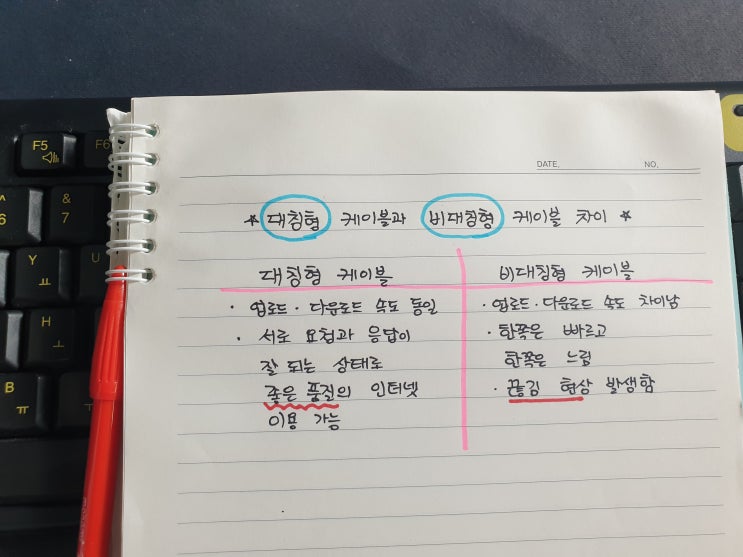 DATE. NO.
★ 대칭형 케이블과 비대칭형 케이블 차이 ★
대칭형 케이블
· 업로드 · 다운로드 속도 동일
· 서로 요청과 응답이
잘 되는 상태로
좋은 품질의 인터넷
이용 가능
비대칭형 케이블
· 업로드 · 다운로드 속도 차이남
· 한쪽은 빠르고
한쪽은 느림
· 끊김 현상 발생함
F5
F6
^
6
&
7
Y
ㅛ
U
H
ㅗ
B
ㅠ